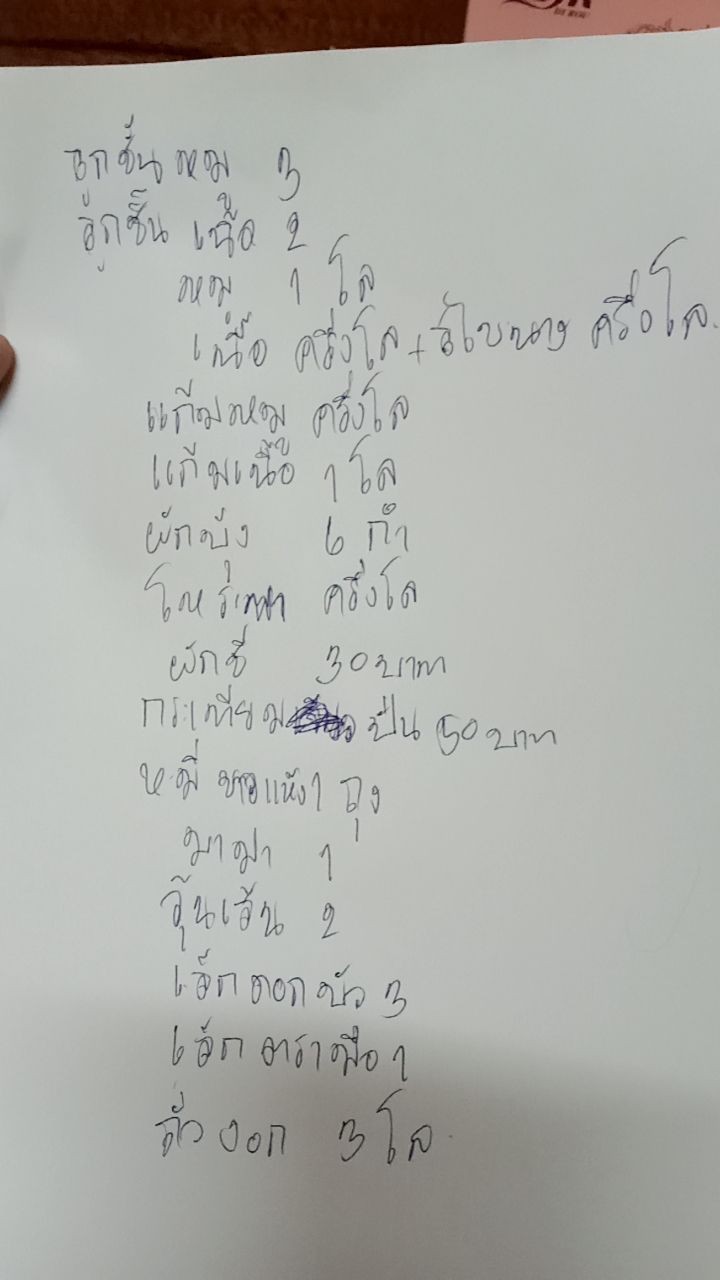 ลูกชิ้นหมู 3
ลูกชิ้น เนื้อ 2
หมู 1 โล
เนื้อ ครึ่งโล + สไบนาง ครึ่งโล.
แถมหมู ครึ่งโล
แถมเนื้อ 1 โล
ผักบุ้ง 6 กำ
โหระพา ครึ่งโล
ผักชี 30 บาท
กระเทียม ป่น 50 บาท
หมี่ขาวแห้ง 1 ถุง
มาม่า 1
วุ้นเส้น 2
เส้น ดอกบัว 3
เส้น ตรามือ 1
ถั่วงอก 3 โล.